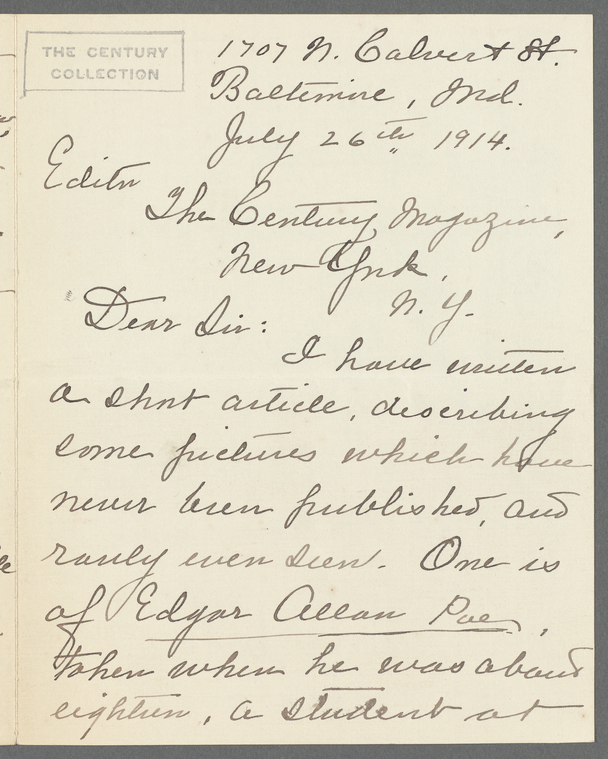 THE CENTURY
COLLECTION
1707 N. Calvert St.
Baltimore, Md.
July 26th 1914.
Editor
The Century Magazine,
New York,
N. Y.
Dear Sir:
I have written
a short article, describing
some pictures which have
never been published, and
rarely even seen. One is
of Edgar Allan Poe,
taken when he was about
eighteen, a student at